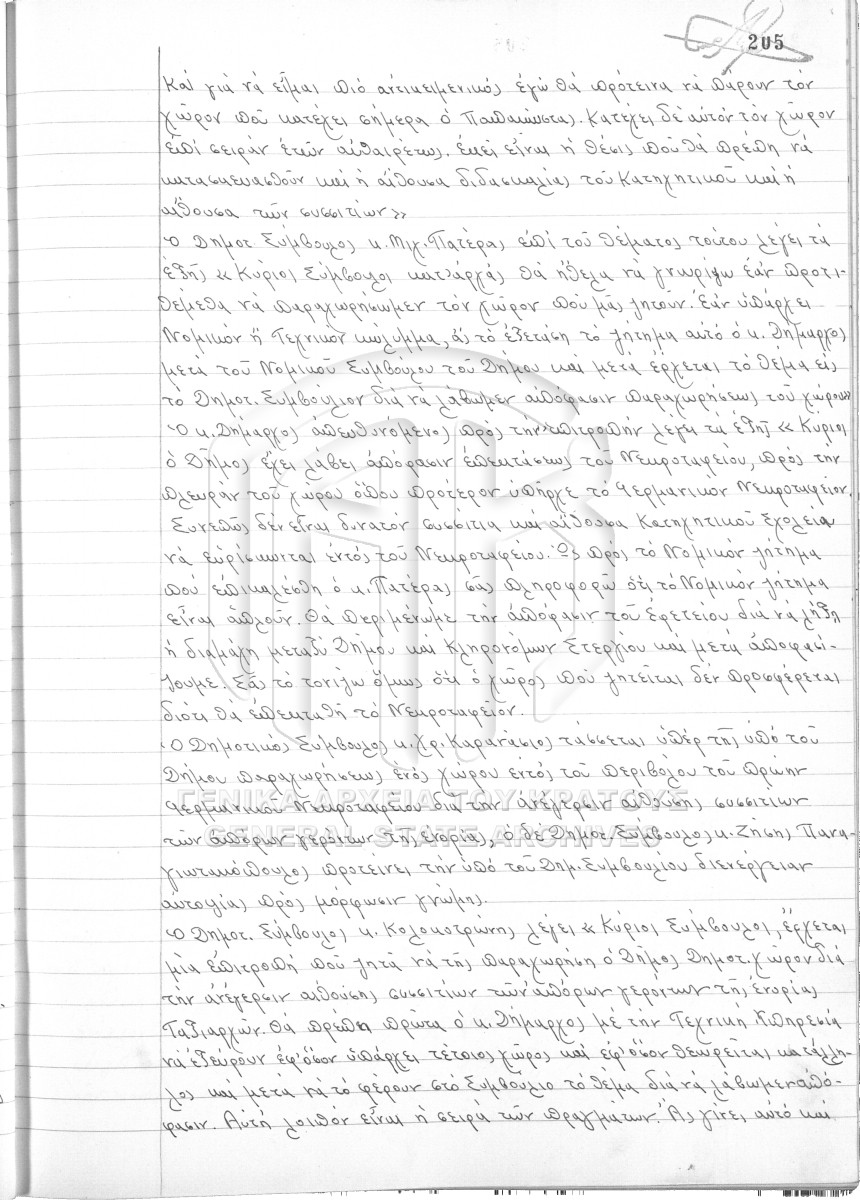 205
Καί γιά νά εἶμαι πιό ἀντικειμενικός ἐγώ θά πρότεινα νά πάρουν τόν
χῶρον πού κατέχει σήμερα ὁ Παπακώστας. Κατέχει δέ αὐτόν τόν χῶρον
ἐπί σειράν ἐτῶν αὐθαιρέτως. Ἐκεῖ εἶναι ἡ θέσις πού θά πρέπη νά
κατασκευασθοῦν καί ἡ αἴθουσα διδασκαλίας τοῦ Κατηχητικοῦ καί ἡ
αἴθουσα τῶν συσσιτίων»
Ὁ Δημοτ. Σύμβουλος κ. Μιχ. Πατέρας ἐπί τοῦ θέματος τούτου λέγει τά
ἑξῆς « Κύριοι Σύμβουλοι κατ'ἀρχάς θά ἤθελα νά γνωρίζω ἐάν προτι-
θέμεθα νά παραχωρήσωμεν τόν χῶρον πού μᾶς ζητοῦν. Ἐάν ὑπάρχει
Νομικόν ἤ Τεχνικόν κώλυμμα, ἄς τό ἐξετάση τό ζήτημα αὐτό ὁ κ. Δήμαρχος
μετά τοῦ Νομικοῦ Συμβούλου τοῦ Δήμου καί μετά ἔρχεται τό θέμα εἰς
το Δημοτ. Συμβούλιον διά νά λάβωμεν ἀπόφασιν παραχωρήσεως τοῦ χώρου»
Ὁ κ. Δήμαρχος ἀπευθυνόμενος πρός τήν ἐπιτροπήν λέγει τά ἑξῆς « Κύριοι
ὁ Δῆμος ἔχει λάβει ἀπόφασιν ἐπεκτάσεως τοῦ Νεκροταφείου, πρός την
πλευράν τοῦ χώρου ὅπου πρότερον ὑπῆρχε τό Γερμανικόν Νεκροταφεῖον.
Συνεπῶς δέν εἶναι δυνατόν συσσίτια καί αἴθουσα Κατηχητικοῦ Σχολεία
νά εὑρίσκωνται ἐντός τοῦ Νεκροταφείου. Ὡς πρός τό Νομικόν ζήτημα
πού ἐπικαλέσθη ὁ κ. Πατέρας σᾶς πληροφορῶ ὅτι τό Νομικόν ζήτημα
εἶναι ἁπλοῦν. Θά περιμένωμε τήν ἀπόφασιν τοῦ Ἐφετείου διά νά λήξη
ἡ διαμάχη μεταξύ Δήμου καί Κληρονόμων Στεργίου καί μετά ἀποφασί-
ζουμε. Σᾶς τό τονίζω ὅμως ὅτι ὁ χῶρος πού ζητεῖται δέν προσφέρεται
διότι θά ἐπεκταθῆ τό Νεκροταφεῖον.
Ὁ Δημοτικός Σύμβουλος κ. Χρ. Καρανάσιος τάσσεται ὑπέρ τῆς ὑπό τοῦ
Δήμου παραχωρήσεως ἑνός χώρου ἐντός τοῦ περιβόλου τοῦ πρώην
Γερμανικοῦ Νεκροταφείου διά τήν ἀνέγερσιν αἰθούσης συσσιτίων
τῶν ἀπόρων γερόντων τῆς ἐνορίας, ὁ δέ Δημοτ. Σύμβουλος κ. Ζήσης Πανα-
γιωτακόπουλος προτείνει τήν ὑπό τοῦ Δημ. Συμβουλίου διενέργειαν
αὐτοψίας πρός μόρφωσιν γνώμης.
Ὁ Δημοτ. Σύμβουλος κ. Κολοκοτρώνης λέγει « Κύριοι Σύμβουλοι, ἔρχεται
μία ἐπιτροπή πού ζητᾶ νά τῆς παραχωρήση ὁ Δῆμος Δημοτ. χῶρον διά
τήν ἀνέγερσιν αἰθούσης συσσιτίων τῶν ἀπόρων γερόντων τῆς ἐνορίας
Ταξιαρχῶν. Θά πρέπει πρῶτα ὁ κ. Δήμαρχος μέ τήν Τεχνική Ὑπηρεσία
νά ἐξεύρουν ἐφ'ὅσον ὑπάρχει τέτοιος χῶρος καί ἐφ'ὅσον θεωρεῖται κατάλλη-
λος καί μετά νά τό φέρουν στό Συμβούλιο τό θέμα διά νά λάβωμεν ἀπό-
φασιν. Αὐτή λοιπόν εἶναι ἡ σειρά τῶν πραγμάτων. Ἄς γίνει αὐτό καί
ΓΕΝΙΚΑ ΑΡΧΕΙΑ ΤΟΥ ΚΡΑΤΟΥΣ
GENERAL STATE ARCHIVES